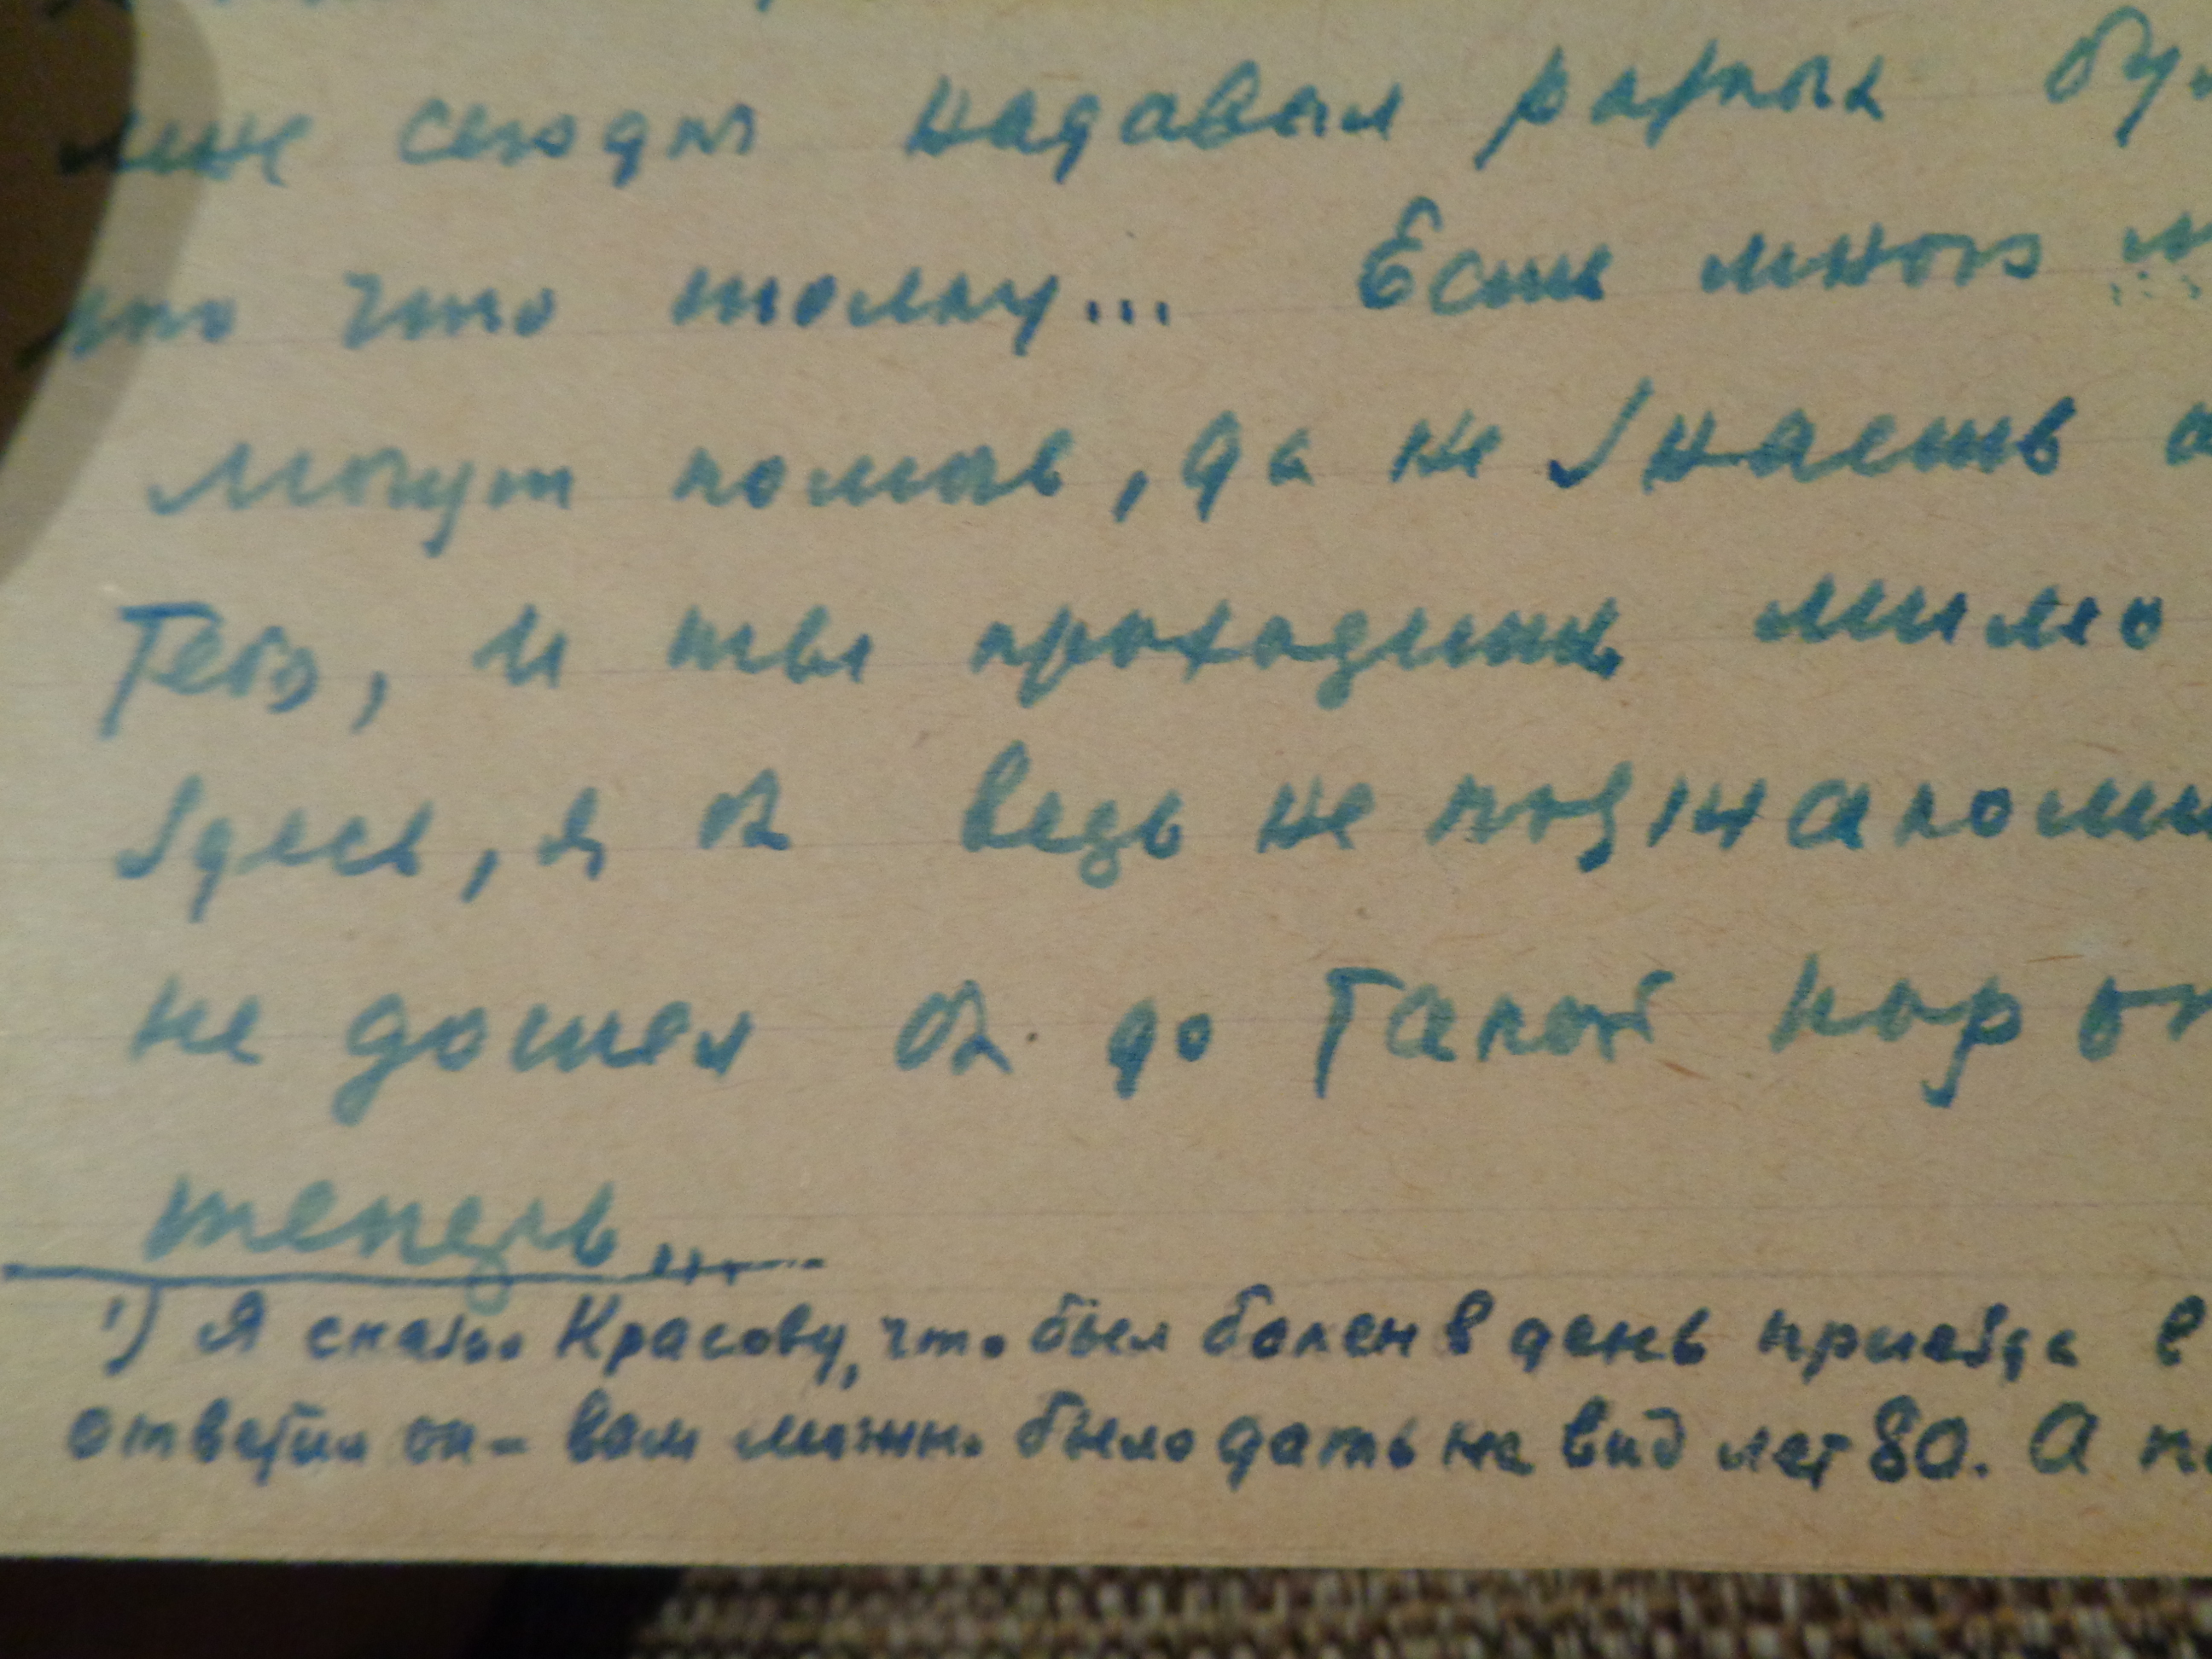 мне сегодня надавал разных
что толку... Есть много
могут помочь, да не знаешь
Тебя, и ты проходишь мимо
здесь, я б ведь не познакоми
не дошел б до такой
теперь...
1) Я сказал Красову, что был болен в день приезда в
ответил он - вам можно было дать на вид лет 80. А